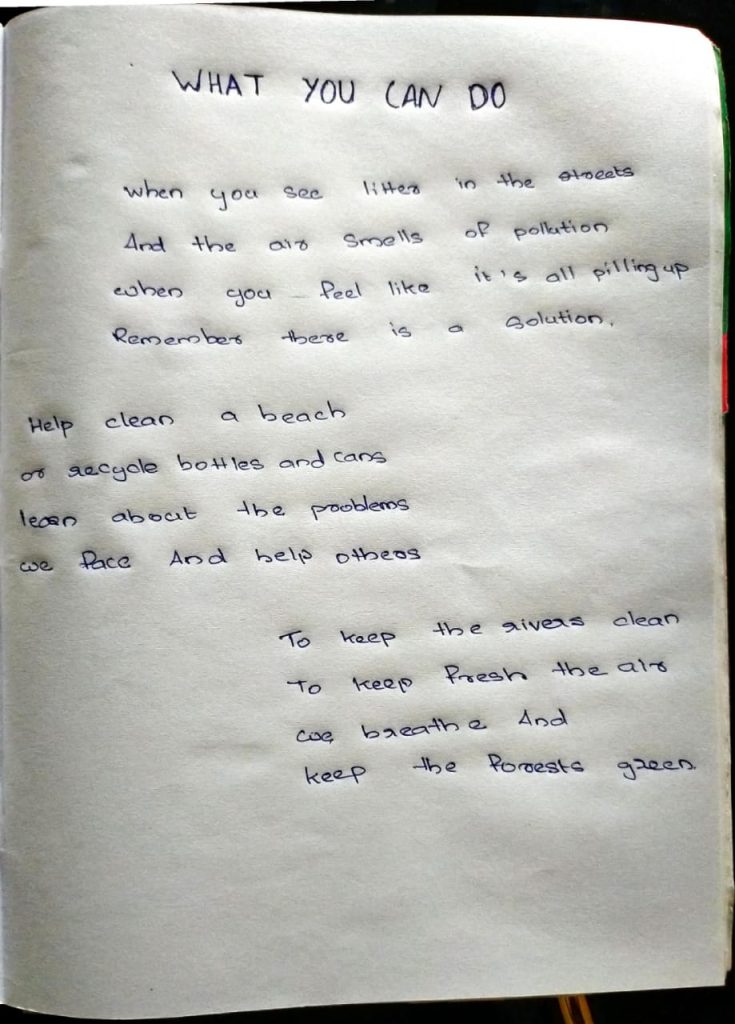 WHAT YOU CAN DO
when you see litter in the streets
And the air smells of pollution
when you feel like it's all pilling up
Remember there is a solution.
Help clean a beach
or recycle bottles and cans
learn about the problems
we face And help others
To keep the rivers clean
To keep fresh the air
we breathe And
keep the forrests green.